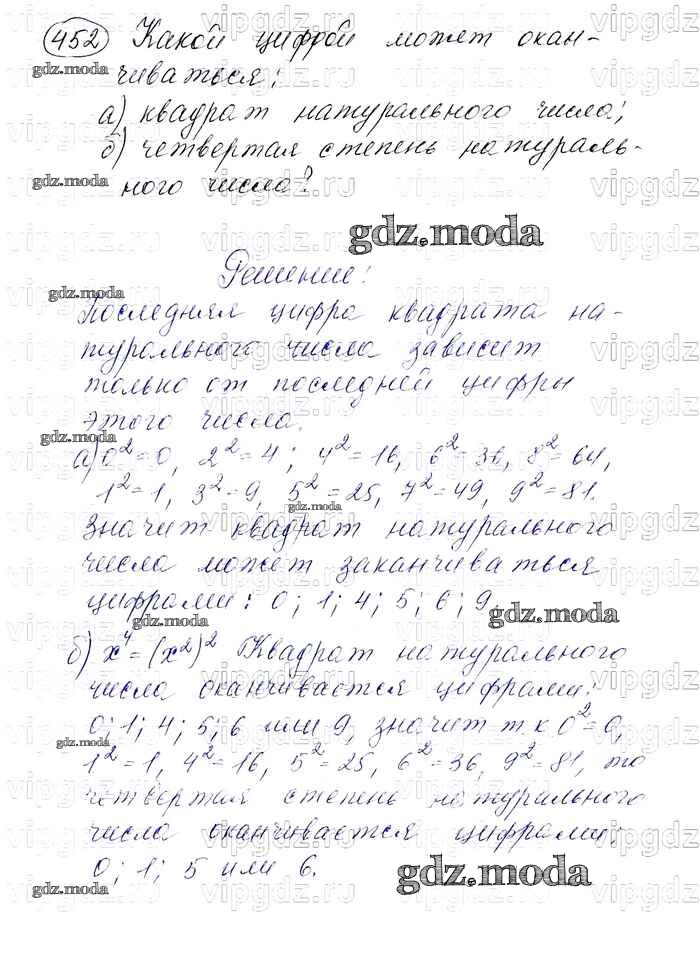 452 Какой цифрой может окан-
чиваться:
а) квадрат натурального числа;
б) четвертая степень натураль-
ного числа?
Решение:
Последняя цифра квадрата на-
турального числа зависит
только от последней цифры
этого числа.
а) 0²=0, 2²=4; 4²=16, 6²=36, 8²=64,
1²=1, 3²=9, 5²=25, 7²=49, 9²=81.
Значит квадрат натурального
числа может заканчиваться
цифрами: 0; 1; 4; 5; 6; 9.
б) x⁴=(x²)² Квадрат натурального
числа оканчивается цифрами:
0; 1; 4; 5; 6 или 9, значит т.к 0²=0,
1²=1, 4²=16, 5²=25, 6²=36, 9²=81, то
четвертая степень натурального
числа оканчивается цифрами:
0; 1; 5 или 6.
gdz.moda
vipgdz.ru